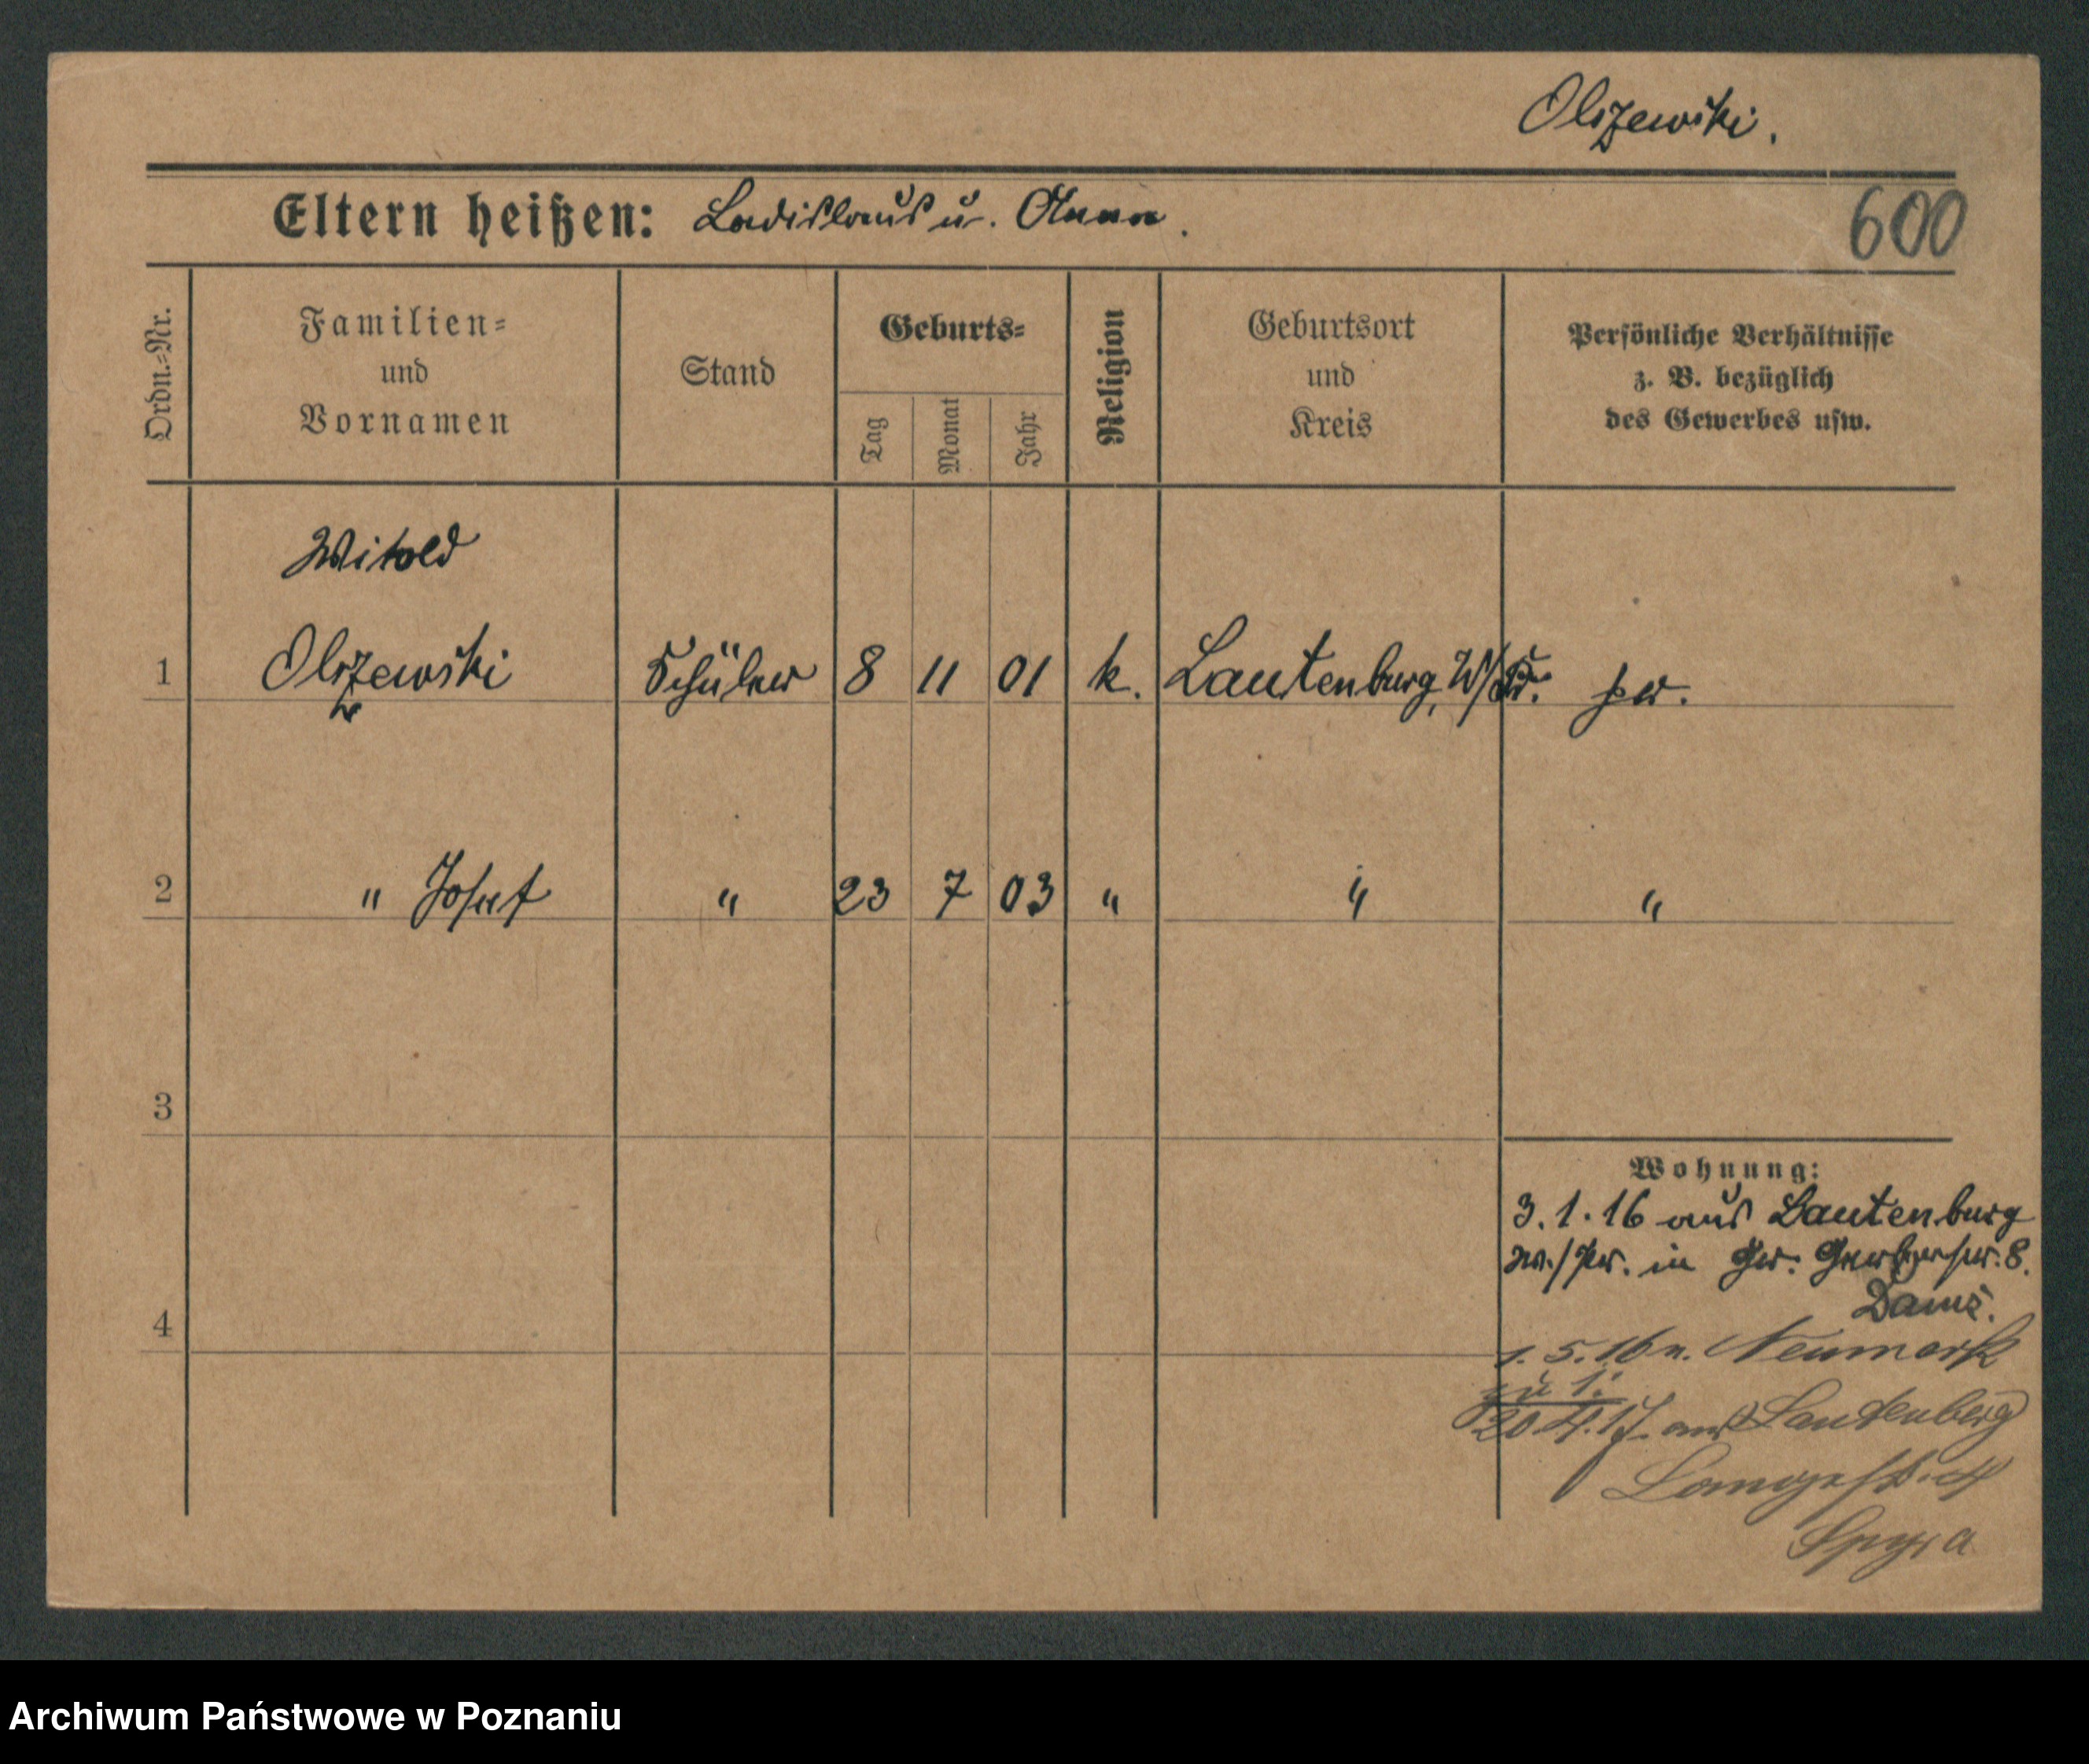 Olszewski.
Eltern heißen: Ladislaus u. Anna.
600
Ordn.-Nr.
Familien-
und
Vornamen
Stand
Geburts-
Tag
Monat
Jahr
Religion
Geburtsort
und
Kreis
Persönliche Verhältnisse
z. B. bezüglich
des Gewerbes usw.
Witold
1 Olszewski Schüler 8 11 01 k. Lautenburg, W/Pr. pr.
2 " Josef " 23 7 03 " " "
3
Wohnung:
3. 1. 16 aus Lautenburg
W./Pr. in Gr. Gerberstr. 8.
4
1. 5. 16 n. Neumark
zu 1.
20. 4. 17. aus Lautenberg
Spyra
Archiwum Państwowe w Poznaniu